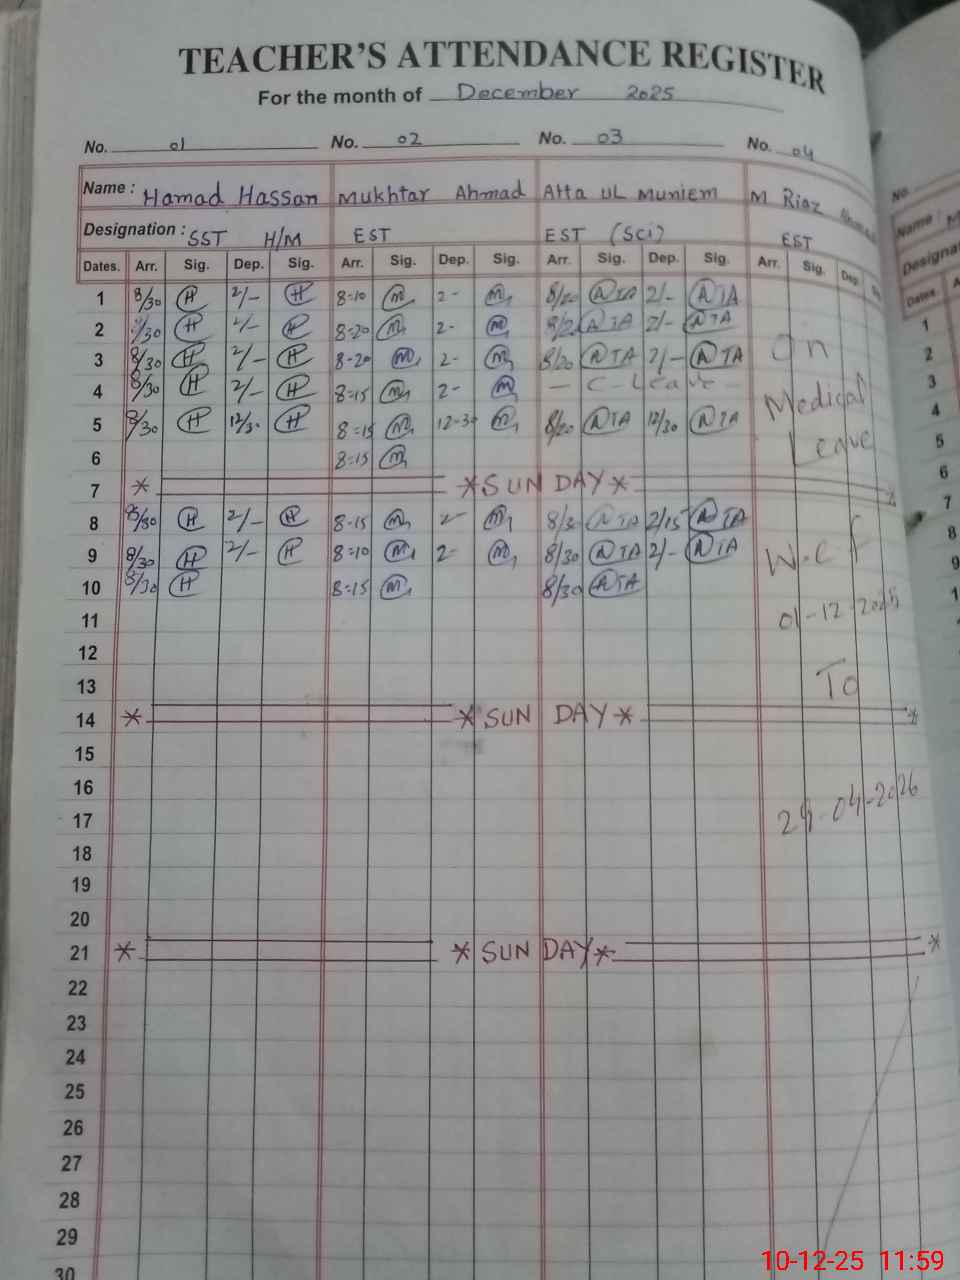 TEACHER'S ATTENDANCE REGISTER
For the month of December 2025
No. 01 No. 02 No. 03 No. 04 No.
Name : Hamad Hassan Mukhtar Ahmad Atta UL Muniem M Riaz Ahmad Name :
Designation : SST H/M EST EST (Sci) EST
Dates. Arr. Sig. Dep. Sig. Arr. Sig. Dep. Sig. Arr. Sig. Dep. Sig. Arr. Sig. Dep. Dates.
1 8/30 H 2/- H 8-10 M 2- M 8/20 ATA 2/- ATA 1
2 8/30 H 2/- H 8-20 M 2- M 8/20 ATA 2/- ATA On 2
3 8/30 H 2/- H 8-20 M 2- M 8/20 ATA 2/- ATA 3
4 8/30 H 2/- H 8=15 M 2- M — C-Leave - Medical 4
5 8/30 H 12/30 H 8=15 M 12-30 M 8/20 ATA 12/30 ATA Leave 5
6 8=15 M 6
7 * *SUNDAY* * 7
8 8/30 H 2/- H 8-15 M 2- M 8/30 ATA 2/15 ATA 8
9 8/30 H 2/- H 8=10 M 2- M 8/30 ATA 2/- ATA W.e.f 9
10 8/30 H 8=15 M 8/30 ATA
11 01-12-2025
12
13 To
14 * *SUNDAY* *
15
16
17 29-04-2026
18
19
20
21 * *SUNDAY* *
22
23
24
25
26
27
28
29
30
10-12-25 11:59